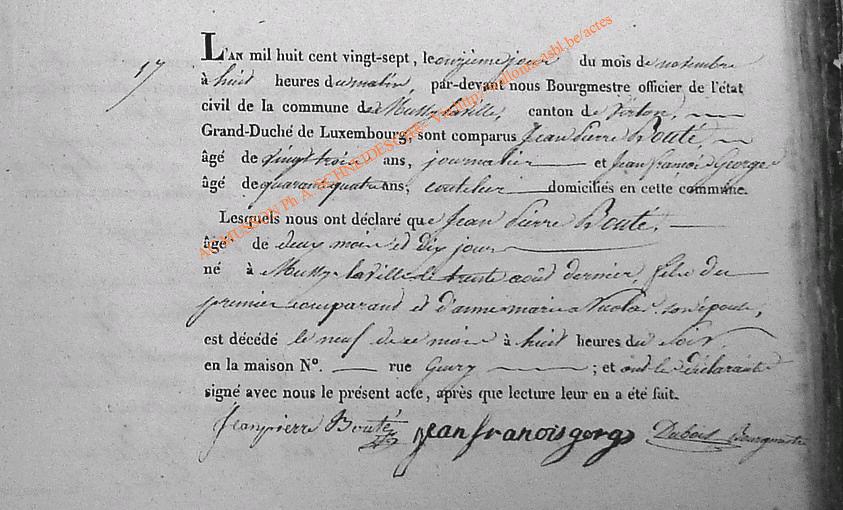 17
L'AN mil huit cent vingt-sept, le onzième jour du mois de novembre
à huit heures du matin, par-devant nous Bourgmestre officier de l'état
civil de la commune de Mussy la ville, canton de Virton,
Grand-Duché de Luxembourg, sont comparus Jean Pierre Bouté,
âgé de vingt trois ans, journalier et Jean francois George
âgé de quarante quatre ans, coutelier domiciliés en cette commune.
Lesquels nous ont déclaré que Jean Pierre Bouté,
âgé de deux mois et dix jour
né à Mussy la ville le trente août dernier, fils du
premier comparant et d'anne marie son épouse,
est décédé le neuf de ce mois à huit heures du soir,
en la maison N°. rue ; et ont les déclarants
signé avec nous le présent acte, après que lecture leur en a été fait.
Jeanpierre Bouté jean franois gorg Dubois Bourgmestre